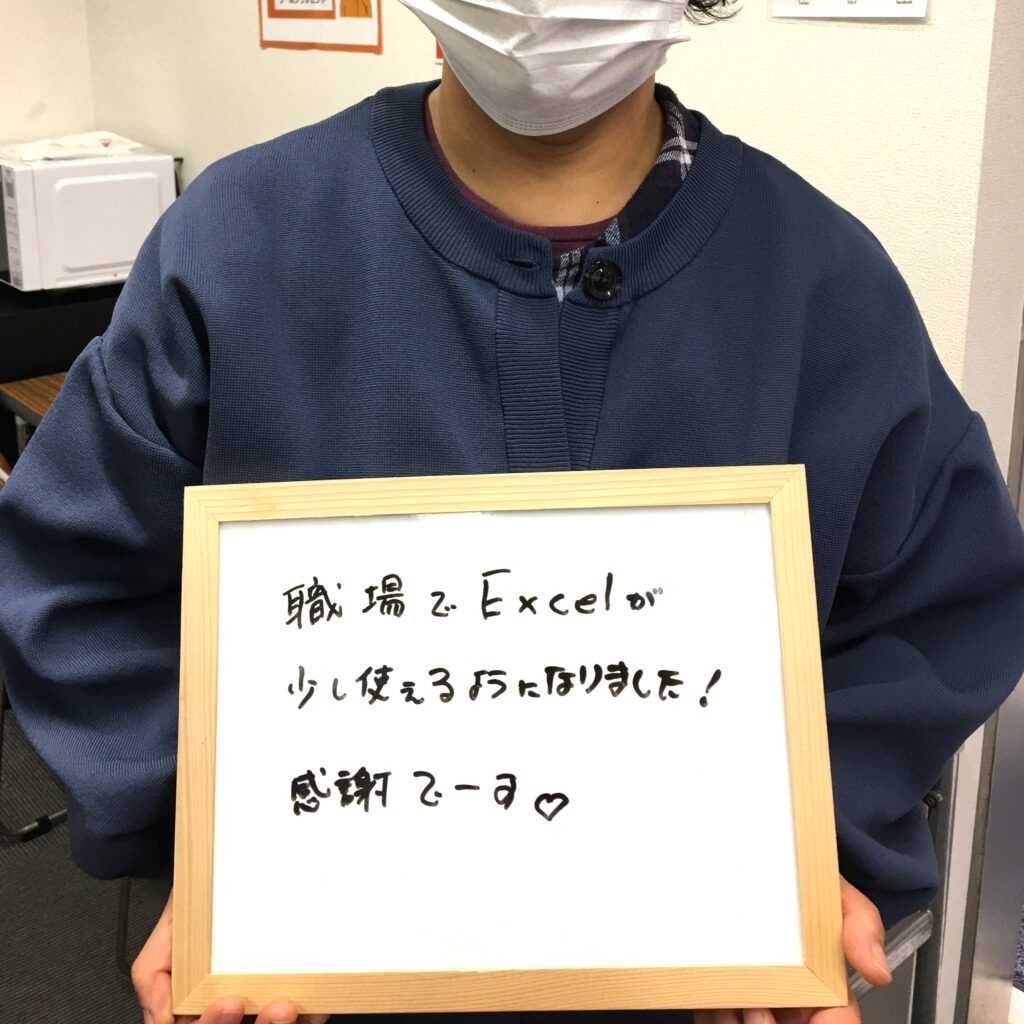 職場でExcelが
少し使えるようになりました!
感謝でーす♡